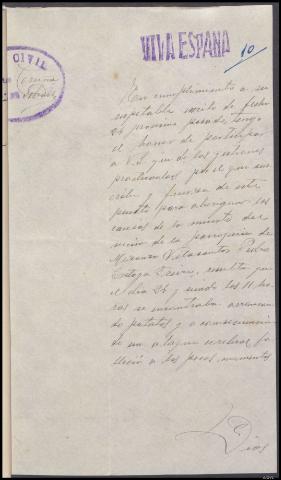 VIVA ESPAÑA
10
CIVIL
En cumplimiento a su
respetable escrito de fecha
26 proximo pasado, tengo
el honor de participar
a V.S. que de las gestiones
practicadas por el que sus-
cribe y fuerza de este
puesto para averiguar las
causas de la muerte del
vecino de la parroquia de
Villasantos Pedro
resulta que
el dia 26 y siendo las 11 ho-
ras se encontraba
do patatas y a consecuencia
de un ataque cerebral fa-
lleció a los pocos momentos
Dios